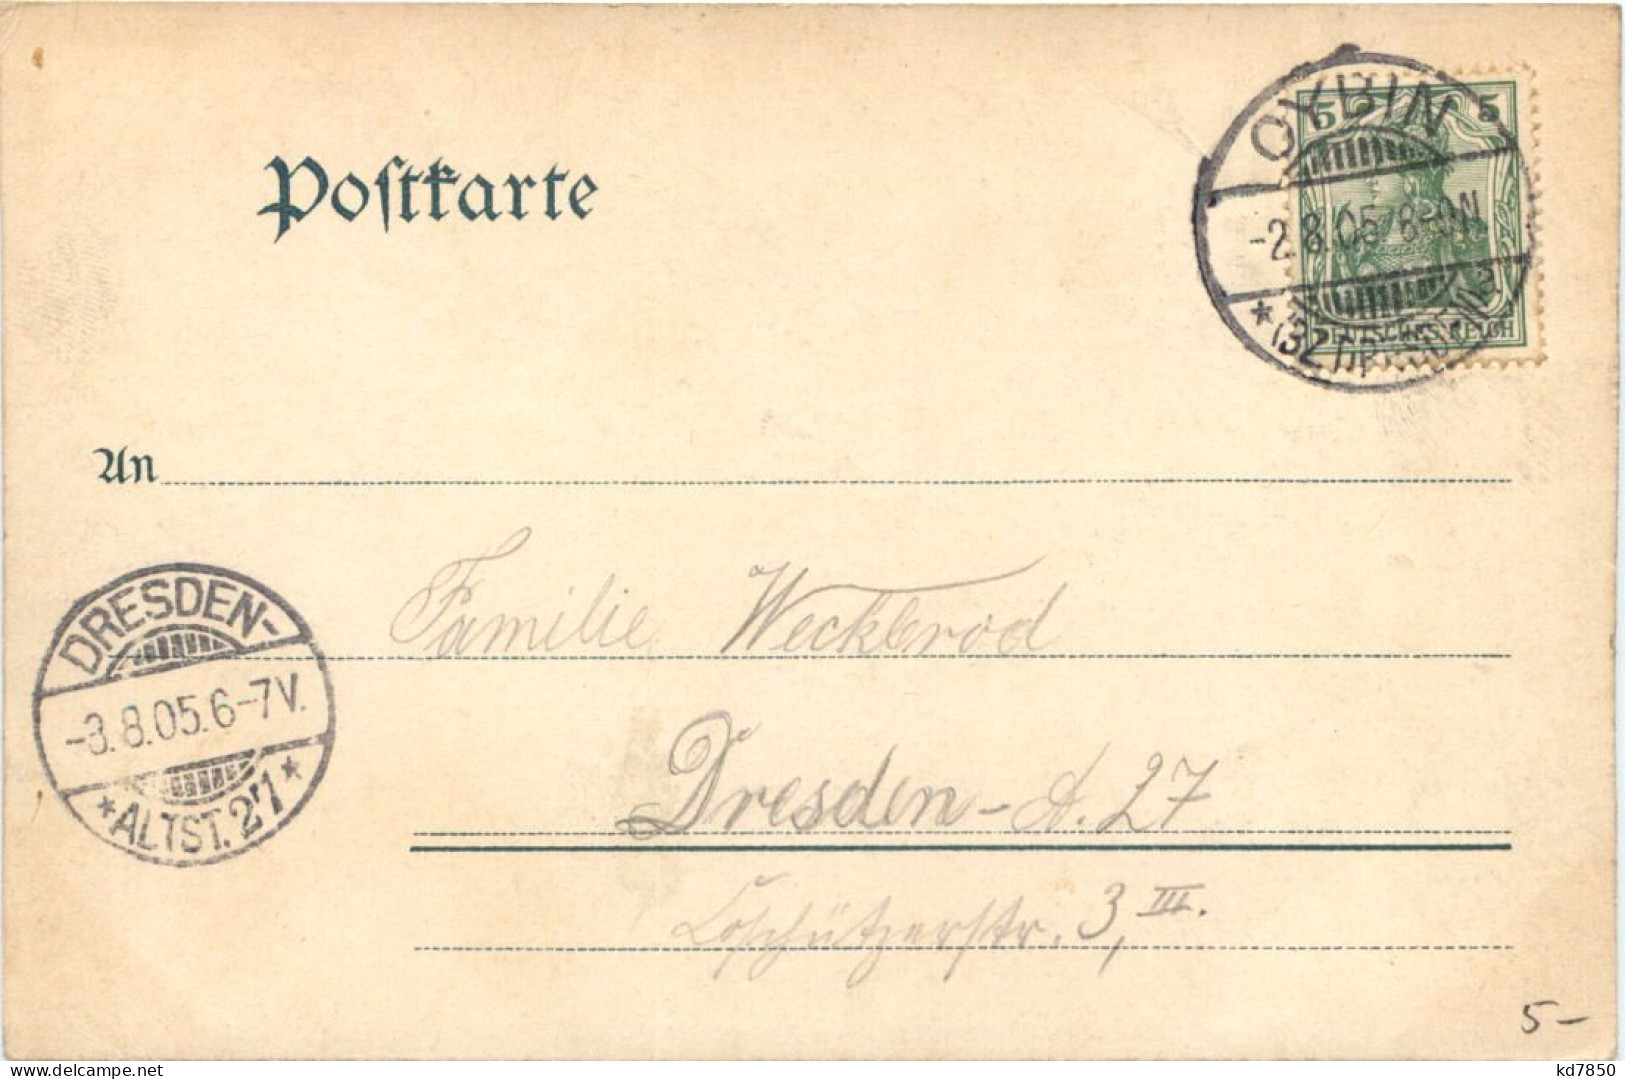 Postkarte
OYBIN
5 5
-2.8.05. 8-9N
DEUTSCHES REICH
An
DRESDEN-
-3.8.05.6-7V.
*ALTST.27*
Familie Weckbrod
Dresden-A. 27
Coschützerstr. 3, III.
5-
kd7850